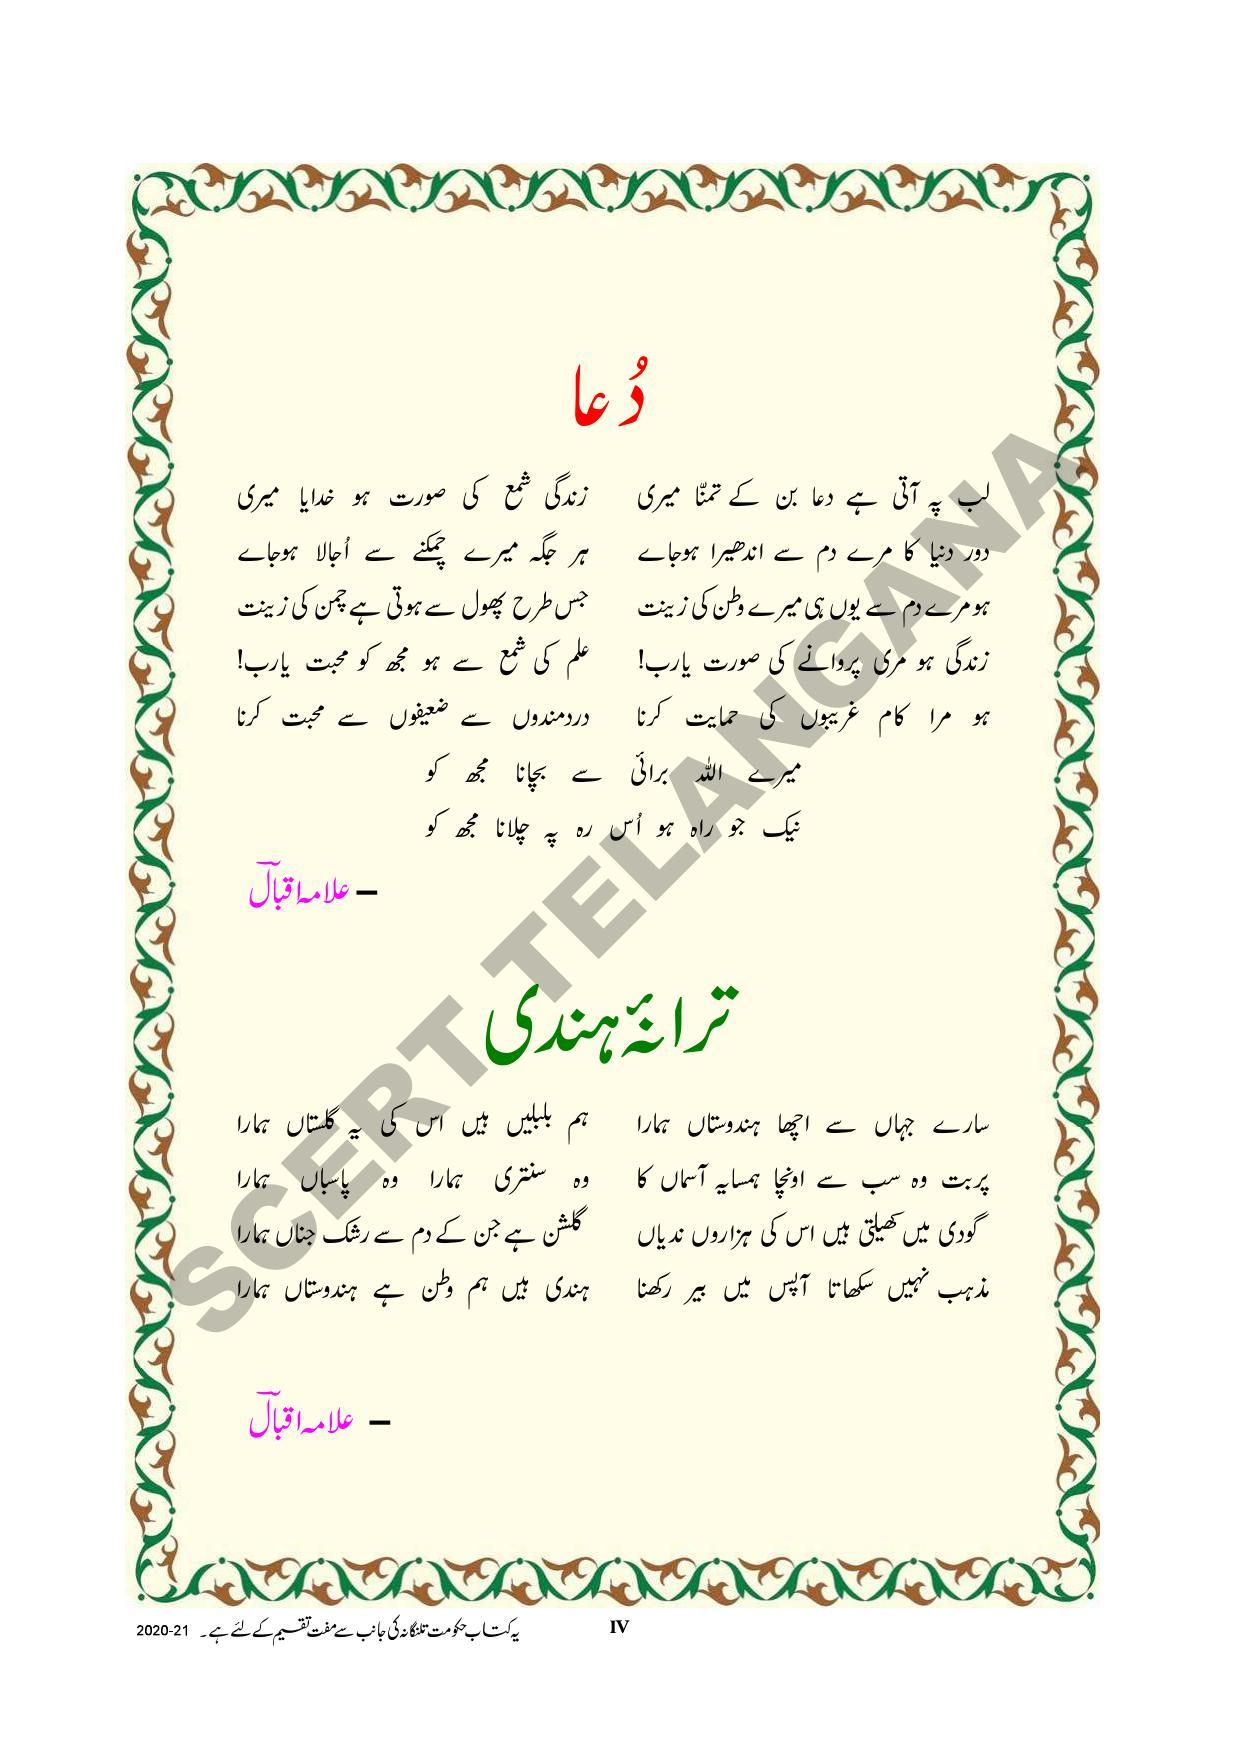 دُعا
لب پہ آتی ہے دعا بن کے تمنّا میری زندگی شمع کی صورت ہو خدایا میری
دور دنیا کا مرے دم سے اندھیرا ہوجاے ہر جگہ میرے چمکنے سے اُجالا ہوجاے
ہو مرے دم سے یوں ہی میرے وطن کی زینت جس طرح پھول سے ہوتی ہے چمن کی زینت
زندگی ہو مری پروانے کی صورت یارب! علم کی شمع سے ہو مجھ کو محبت یارب!
ہو مرا کام غریبوں کی حمایت کرنا دردمندوں سے ضعیفوں سے محبت کرنا
میرے اللہ برائی سے بچانا مجھ کو
نیک جو راہ ہو اُس رہ پہ چلانا مجھ کو
– علامہ اقبالؔ
ترانۂ ہندی
سارے جہاں سے اچھا ہندوستاں ہمارا ہم بلبلیں ہیں اس کی یہ گلستاں ہمارا
پربت وہ سب سے اونچا ہمسایہ آسماں کا وہ سنتری ہمارا وہ پاسباں ہمارا
گودی میں کھیلتی ہیں اس کی ہزاروں ندیاں گلشن ہے جن کے دم سے رشک جناں ہمارا
مذہب نہیں سکھاتا آپس میں بیر رکھنا ہندی ہیں ہم وطن ہے ہندوستاں ہمارا
– علامہ اقبالؔ
SCERT TELANGANA
یہ کتاب حکومت تلنگانہ کی جانب سے مفت تقسیم کے لئے ہے۔ 2020-21
IV